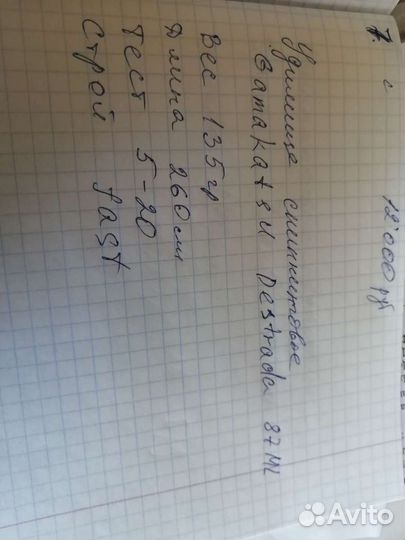 7.
12'000 руб
Удилище спиннинговое
Gamakatsu Destrada 87ML
Вес 135гр
Длина 260см
Тест 5-20
Строй fast
Avito